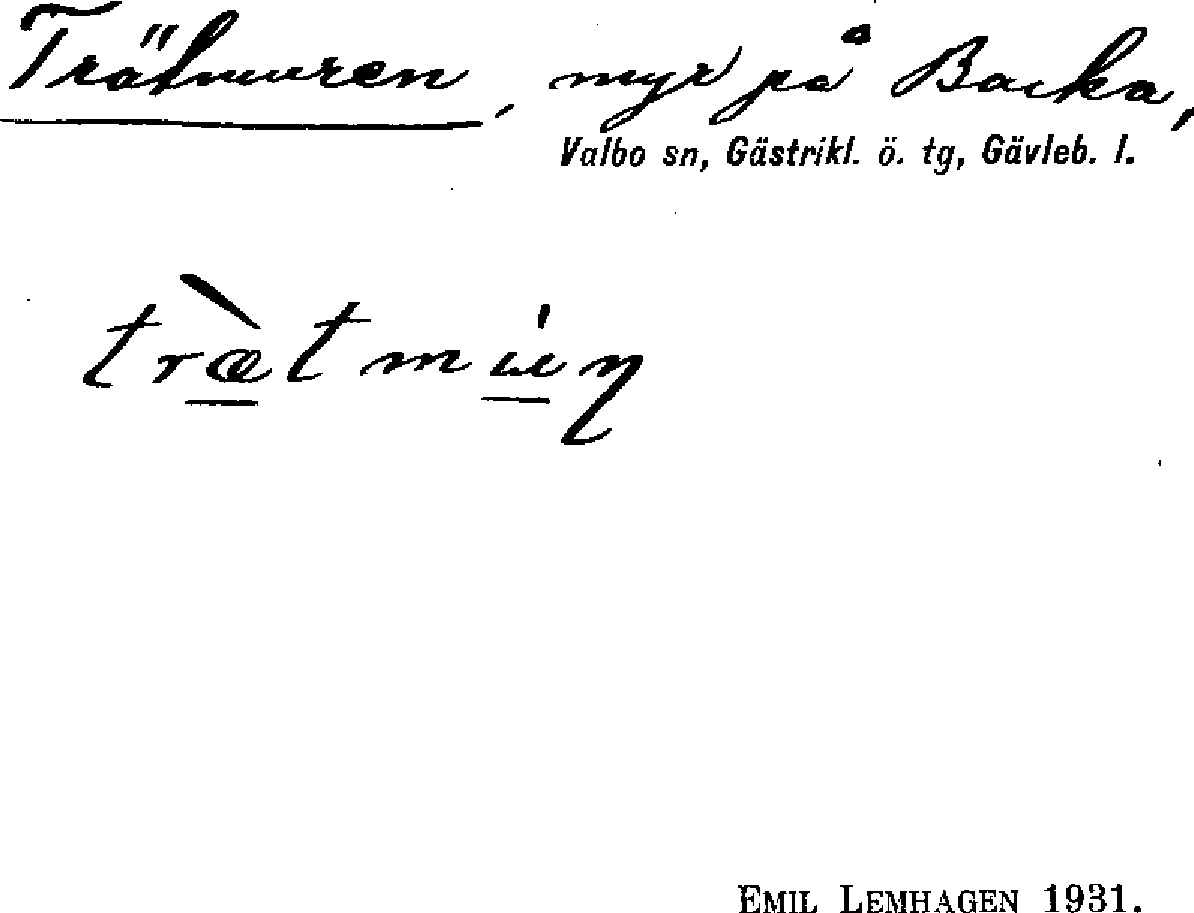 Trätmuren, myr på Backa,
Valbo sn, Gästrikl. ö. tg, Gävleb. l.
træ̀tmúꞃ
EMIL LEMHAGEN 1931.